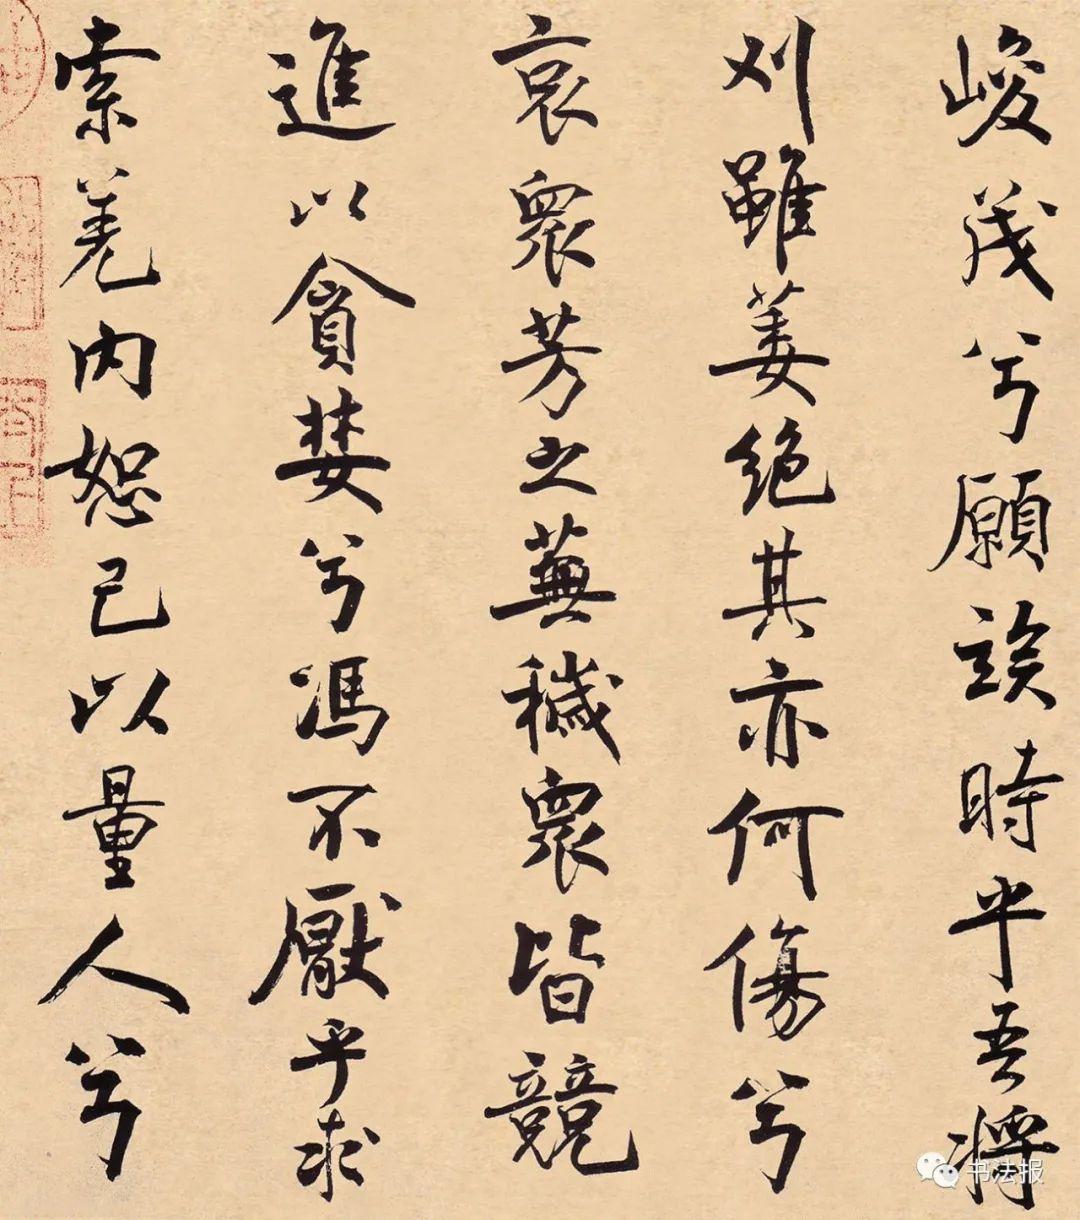 峻茂兮願竢時乎吾將
刈雖萎絕其亦何傷兮
哀眾芳之蕪穢眾皆競
進以貪婪兮馮不厭乎求
索羌內恕己以量人兮
书法报